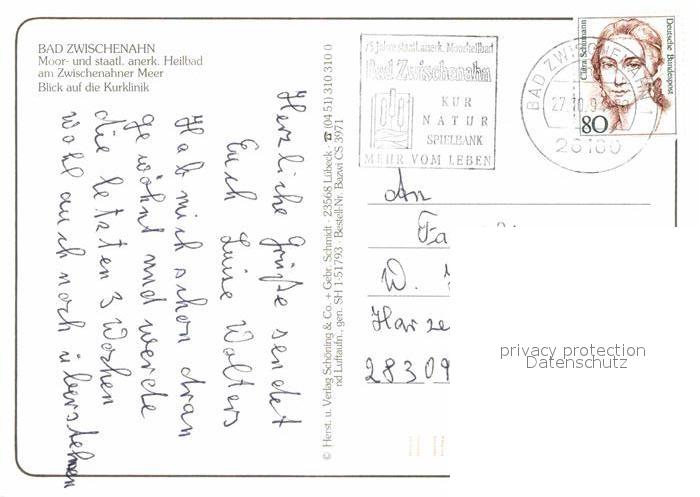 BAD ZWISCHENAHN
Moor- und staatl. anerk. Heilbad
am Zwischenahner Meer
Blick auf die Kurklinik
Herzliche Grüße sendet
Euch Luise Wolters
Hab mich schon dran
gewöhnt und werde
die letzten 3 Wochen
wohl auch noch überstehen
© Herst. u. Verlag Schöning & Co. + Gebr. Schmidt · 23568 Lübeck · ☎ (04 51) 310 310 0
nd Luftaufn., gen. SH 1-51793 · Bestell-Nr. Bazwi CS 3971
75 Jahre staatl. anerk. Moorheilbad
Bad Zwischenahn
KUR
NATUR
SPIELBANK
MEHR VOM LEBEN
BAD ZWISCHENAHN
27.10.9
26160
Clara Schumann
Deutsche Bundespost
80
An
Fa
W.
Harze
28309
privacy protection
Datenschutz